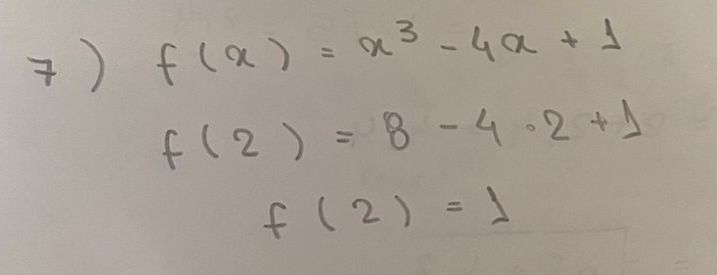 7) f(x) = x³ - 4x + 1
f(2) = 8 - 4 · 2 + 1
f(2) = 1